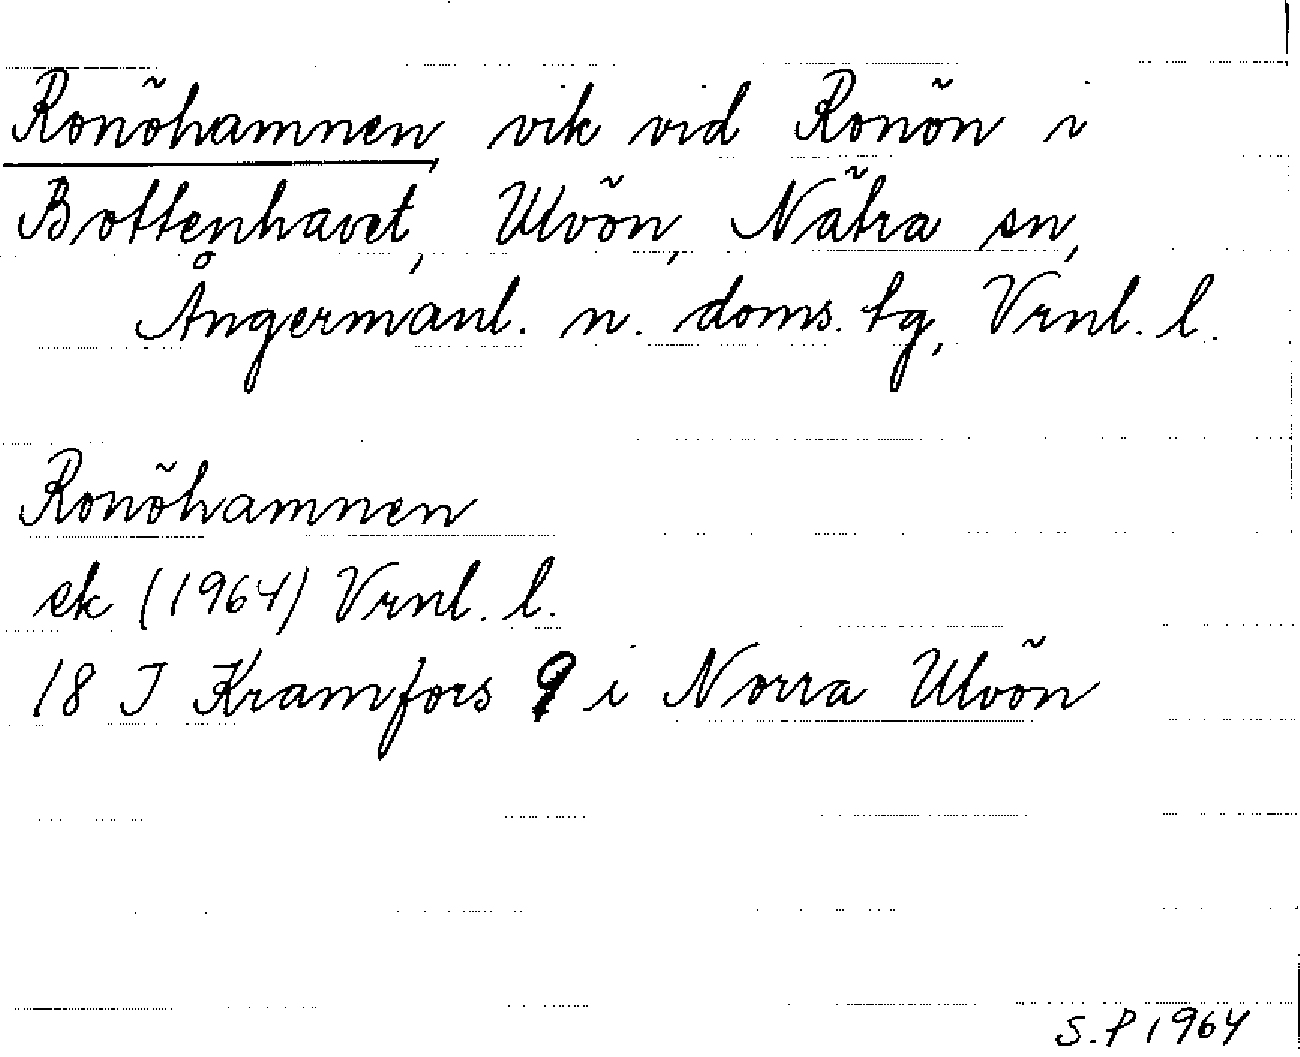 Ronöhamnen, vik vid Ronön i
Bottenhavet, Ulvön, Nätra sn,
Ångermanl. n. doms. tg, Vrnl. l.
Ronöhamnen
ek (1964) Vrnl. l.
18 J Kramfors 9 i Norra Ulvön
S.P 1964